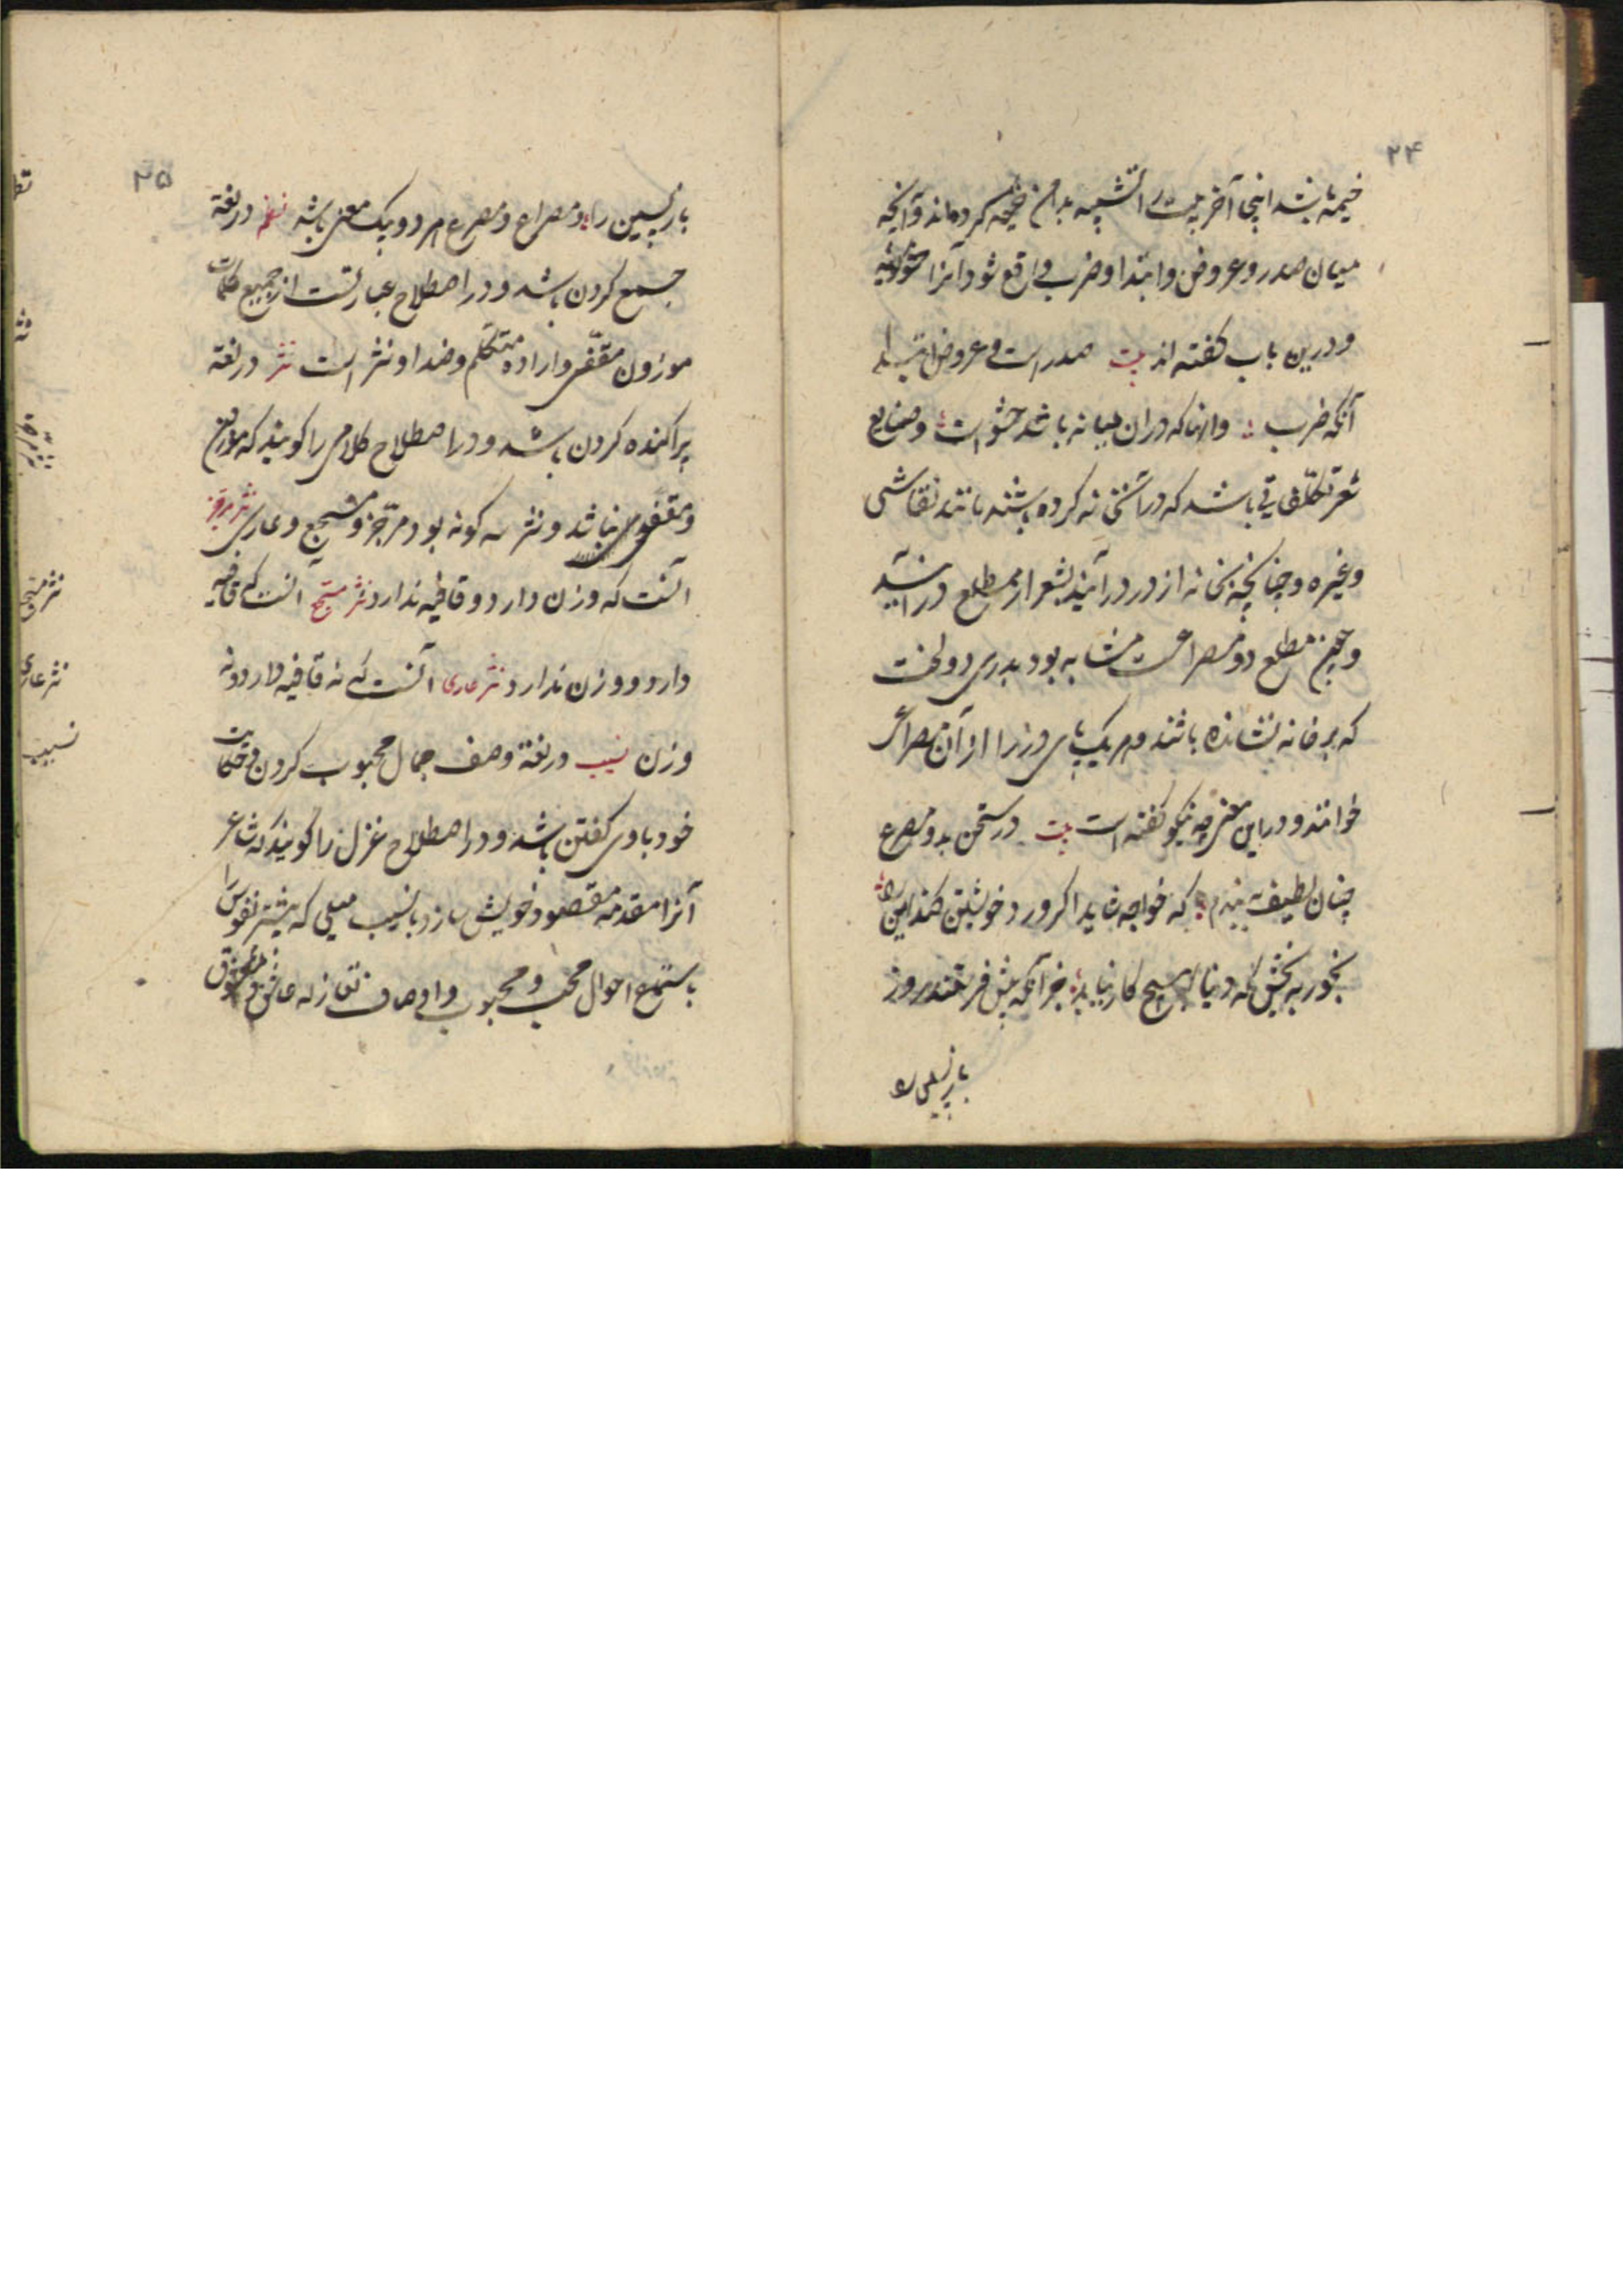 ۲۴
خیمه باشد اینجا آخر بیت را تشبیه بدان خیمه کرده‌اند و آنچه
میان صدر و عروض و ابتدا و ضرب واقع شود آنرا حشو گویند
و درین باب گفته‌اند بیت صدر است و عروض ابتدا
آنکه ضرب وانها که دران میانه باشد حشو است وصنایع
شعر تکلفاتی باشد که در آن خانه کرده باشند مانند نقاشی
وغیره و چنانچه بخانه از در درآیند بشعر از مطلع درآیند
و چون مطلع دو مصراعست مشابه بود بدری دو لخت
که برخانه نشانده باشند و هر یک
خوانند و در این معنی چه نیکو گفته است بیت در سخن بدو مصرع
چنان لطیف ببندم که خواجه شاید اکر ورد خویشتن کند این را
بخور ببخش که دنیا بهیچ کار نیاید جز آنکه پیش فرستند روز
بازپسین را
۲۵
بازپسین را و مصراع و مصرع هر دو بیک معنی باشد نظم در لغة
جمع کردن باشد و در اصطلاح عبارتست از جمیع کلمات
موزون مقفی و اراده متکلم و ضد او نثر است نثر در لغة
پراکنده کردن باشد و در اصطلاح کلامی را کویند که موزون
و مقفی نباشد و نثر سه کونه بود مرجز و مسجع و عاری نثر مرجز
آنست که وزن دارد و قافیه ندارد نثر مسجع آنست که قافیه
دارد و وزن ندارد نثر عاری آنست که نه قافیه دارد و نه
وزن نسیب در لغة وصف جمال محبوب کردن و حکایت
خود با وی کفتن باشد و در اصطلاح غزل را کویند که شاعر
آنرا مقدمه مقصود خویش سازد بانسیب میلی که بیشتر نفوس را
باستماع احوال محب و محبوب و اوصاف تغازل عاشق و معشوق
نثر مسجع
نثر عاری
نسیب